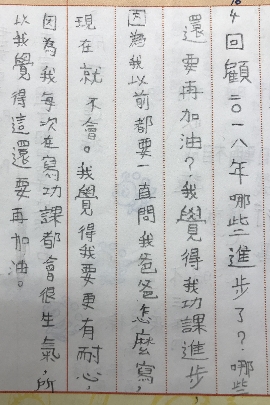 4回顧二〇一八年哪些進步了?哪些
還要再加油?我覺得我功課進步,
因為我以前都要一直問我爸爸怎麼寫,
現在就不會。我覺得我要更有耐心,
因為,我每次在寫功課都會很生氣,所
以我覺得這還要再加油。